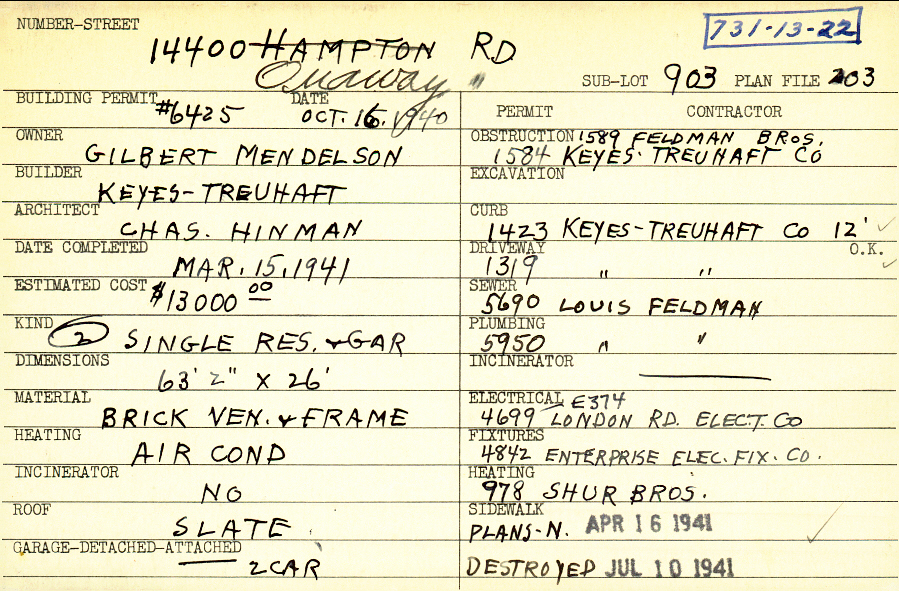 NUMBER-STREET
731-13-22
14400 HAMPTON RD
Onaway "
SUB-LOT 903 PLAN FILE 203
BUILDING PERMIT #6425 DATE OCT. 16, 1940
OWNER
GILBERT MENDELSON
BUILDER
KEYES-TREUHAFT
ARCHITECT
CHAS. HINMAN
DATE COMPLETED
MAR. 15, 1941
ESTIMATED COST $13000 00
KIND
2 SINGLE RES. & GAR
DIMENSIONS
63' 2" X 26'
MATERIAL
BRICK VEN. & FRAME
HEATING
AIR COND
INCINERATOR
NO
ROOF
SLATE
GARAGE-DETACHED-ATTACHED
2 CAR
PERMIT CONTRACTOR
OBSTRUCTION 1589 FELDMAN BROS.
1584 KEYES-TREUHAFT CO
EXCAVATION
CURB
1423 KEYES-TREUHAFT CO 12' ✓
DRIVEWAY O.K.
1319 " " ✓
SEWER
5690 LOUIS FELDMAN
PLUMBING
5950 " "
INCINERATOR
ELECTRICAL E374
4699 LONDON RD. ELECT. CO
FIXTURES
4842 ENTERPRISE ELEC. FIX. CO.
HEATING
978 SHUR BROS.
SIDEWALK
PLANS-N. APR 16 1941 ✓
DESTROYED JUL 10 1941